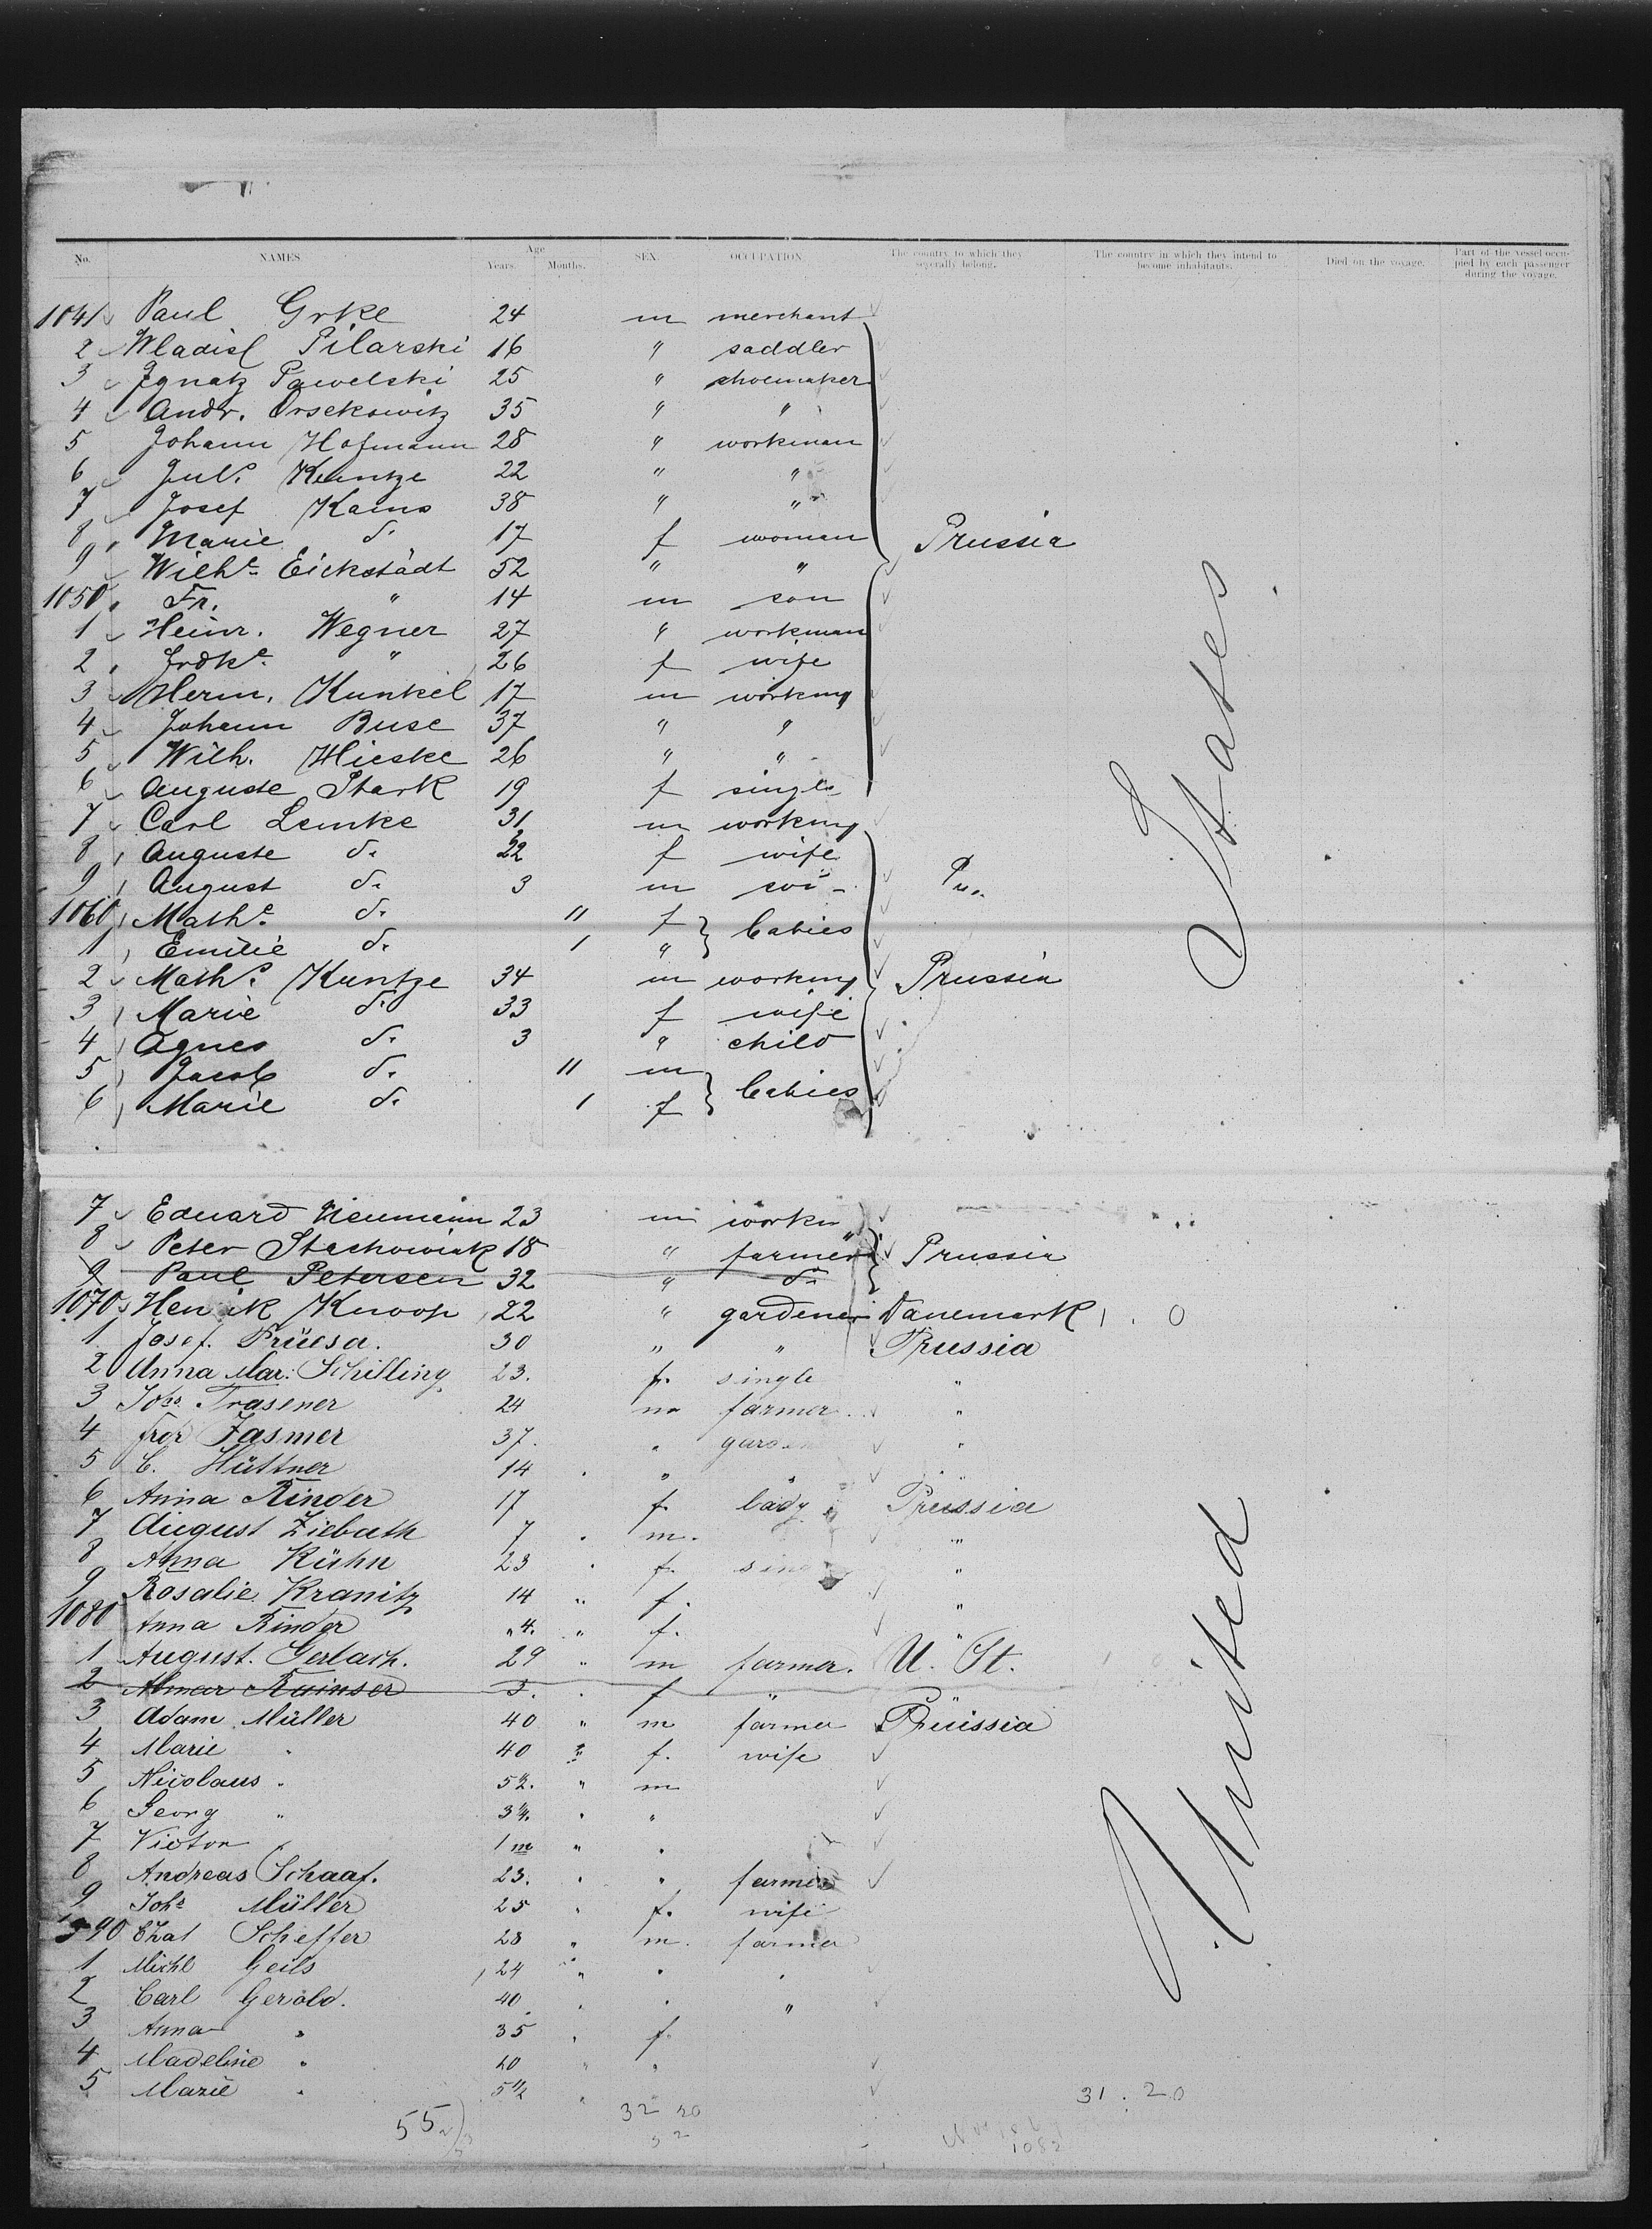 No. NAMES Age Years. Months. SEX. OCCUPATION The country to which they severally belong. The country in which they intend to become inhabitants. Died on the voyage. Part of the vessel occupied by each passenger during the voyage.
1041 Paul Grke 24 m merchant
2 Wladisl Pilarski 16 " saddler
3 Ignatz Pawelski 25 " shoemaker
4 Andr. Orsekowitz 35 " "
5 Johann Hofmann 28 " workman
6 Juls. Kuntze 22 " "
7 Josef Kams 38 " "
8 Marie d. 17 f woman Prussia
9 Wilhe. Eickstädt 52 " "
1050 Fr. " 14 m son
1 Heinr. Wegner 27 " workman
2 Frdke. " 26 f wife
3 Herm. Kunkel 17 m workmg
4 Johann Buse 37 " "
5 Wilh. Hieske 26 " "
6 Auguste Stark 19 f single
7 Carl Lemke 31 m workmg
8 Auguste d. 22 f wife
9 August d. 3 m son Pr..
1060 Mathe. d. 11 f babies
1 Emilie d. 1 "
2 Maths. Kuntze 34 m workmg Prussia
3 Marie d. 33 f wife
4 Agnes d. 3 " child
5 Jacob d. 11 m babies
6 Marie d. 1 f
7 Eduard Neumann 23 m workm
8 Peter Stachowiak 18 " farmer Prussia
9 Paul Petersen 32 " do
1070 Henrik Knoop 22 " gardener Danemark 1 . 0
1 Josef. Prüesa. 30 " " Prussia
2 Anna Mar: Schilling 23. f. single "
3 Johs. Trasener 24 m farmer "
4 Frdr Jasmer 37. " garden "
5 C. Hüttner 14 " "
6 Anna Rinder 17 f. lady Prussia
7 August Ziebath 7 m. "
8 Anna Kühn 23 f. sing "
9 Rosalie Kranitz 14 " f. "
1080 Anna Rinder "4. " f. "
1 August. Gerlach. 29 " m farmer. U. St.
2 3. f "
3 Adam Müller 40 " m farmer Prüissia
4 Marie " 40 " f. wife
5 Nicolaus " 5½. " m
6 Georg " 3¼. " "
7 Victor " 1 m " "
8 Andreas Schaaf. 23. " " farmer
9 Johe Müller 25 " f. wife
1090 Chat Scheffer 28 " m. farmer
1 Michl Geils 24 " "
2 Carl Gerold. 40 " " "
3 Anna " 35 " f.
4 Madeline " 20 " "
5 Marie " 5½ "
31 . 20
55 32 20
1082
United States.